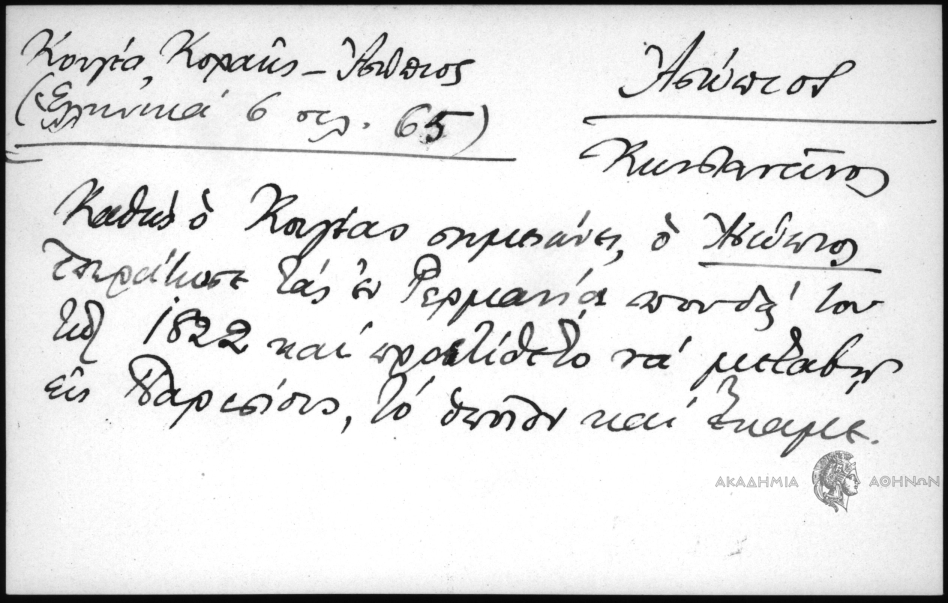 Κουγέα, Κοραῆς – Ἀσώπιος
(Ἑλληνικά 6 σελ. 65)
Ἀσώπιος
Κωνσταντῖνος
Καθὼς ὁ Κουγέας σημειώνει, ὁ Ἀσώπιος
ἐπεράτωσε τάς ἐν Γερμανίᾳ σπουδάς του
τῷ 1822 καί προετίθετο νά μεταβῇ
εἰς Παρισίους, τό ὁποῖον καί ἔκαμε.
ΑΚΑΔΗΜΙΑ ΑΘΗΝΩΝ